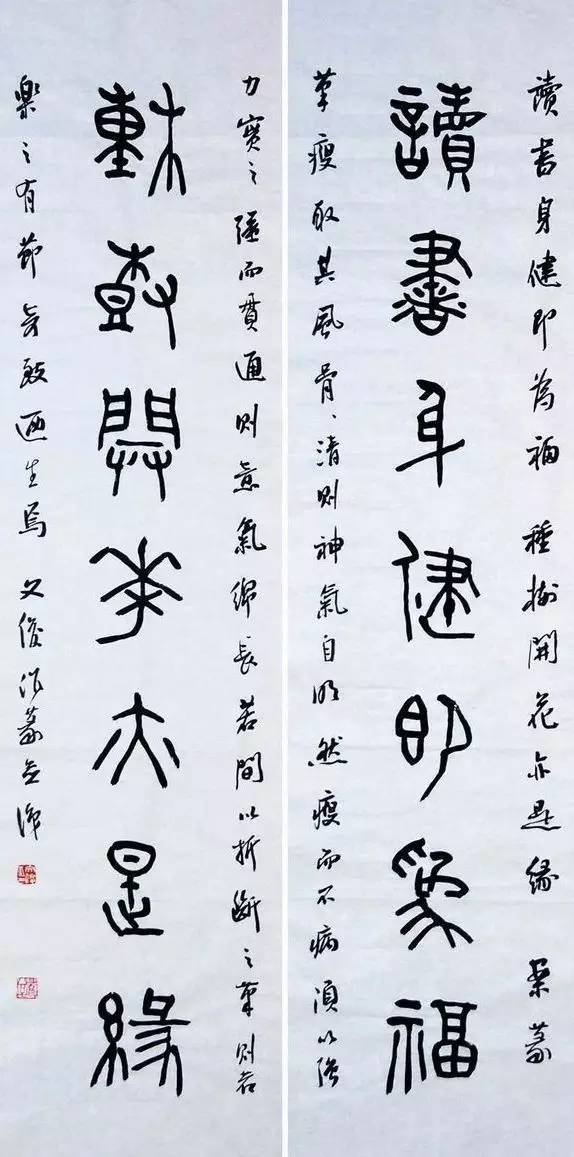 讀書身健即為福 種樹開花亦是緣 集篆
讀書身健即爲福
筆瘦取其風骨、清則神氣自明、然瘦而不病須以強
力實之強而貫通則意氣綿長若間以折斷之筆則若
種樹開花亦是緣
樂之有節奇致迺生焉 文俊作篆並